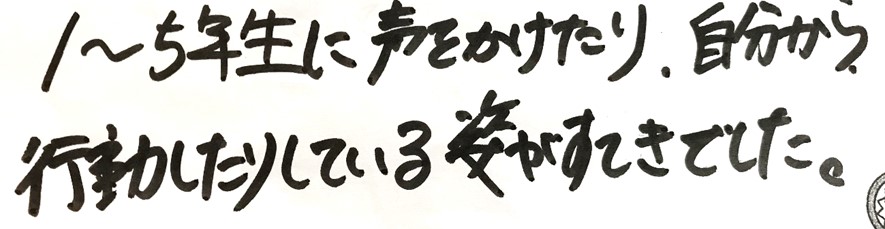 1〜5年生に声をかけたり、自分から
行動したりしている姿がすてきでした。